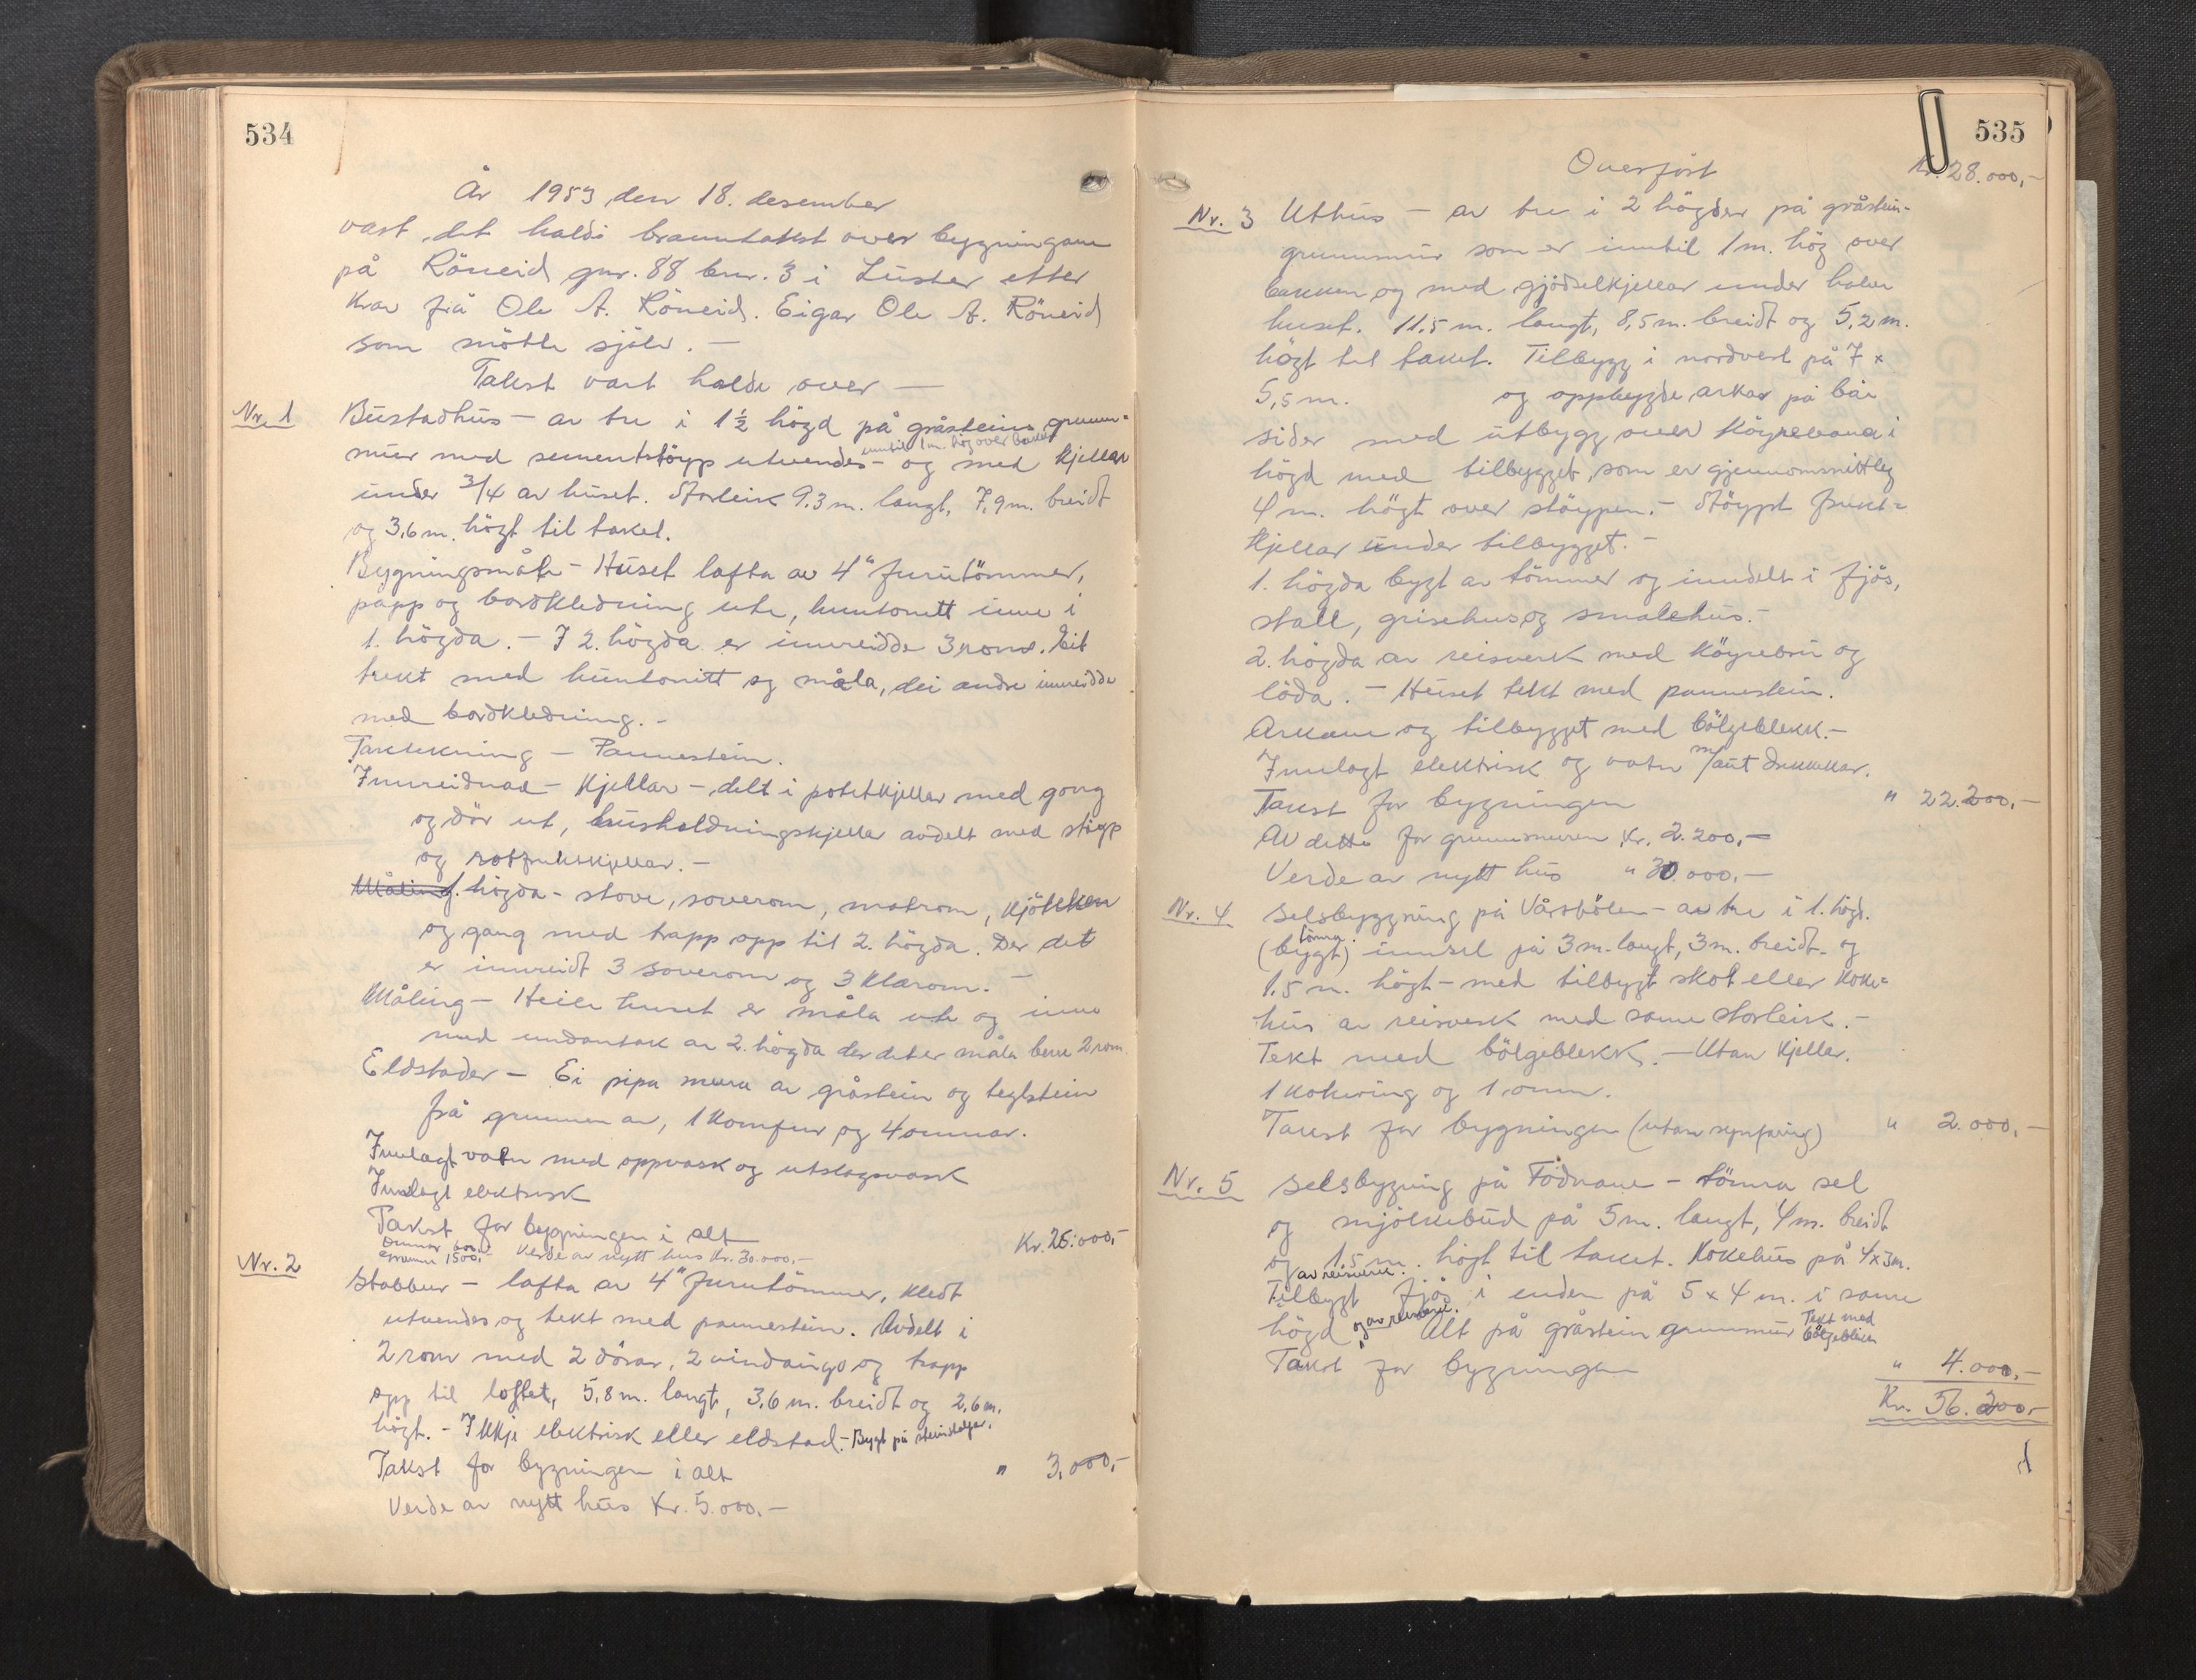 534
År 1953 den 18. desember
vart det haldi branntakst over bygningane
på Röneid gnr. 88 bnr. 3 i Luster etter
krav frå Ole A. Röneid. Eigar Ole A. Röneid
som mötte sjölv. —
Takst vart halde over —
Nr. 1 Bustadhus — av tre i 1½ högd på gråsteins grunn-
inntil 1 m. hög over bakken
mur med sementstöyp utvendes — og med kjellar
under 3/4 av huset. Storleik 9.3 m. langt, 7,9 m. breidt
og 3,6 m. högt til taket.
Bygningsmåte — Huset lafta av 4" furutömmer,
papp og bordkledning ute, huntonitt inne i
1. högda. — I 2. högda er innreidde 3 rom. Eit
trekt med huntonitt og måla, dei andre innreidde
med bordkledning. —
Taktekning — Pannestein.
Innreidnad — Kjellar — delt i potetkjellar med gong
og dör ut, husholdningskjellar avdelt med stöyp
og rotfruktkjellar. —
Måling 1. högda — stove, soverom, matrom, kjökken
og gang med trapp opp til 2. högda. Der det
er innreidt 3 soverom og 3 klerom. —
Måling — Heile huset er måla ute og inne
med undantak av 2. högda der det er måla berre 2 rom
Eldstader — Ei pipa mura av gråstein og teglstein
frå grunnen av, 1 komfur og 4 omnar.
Innlagt vatn med oppvask og utslagsvask
Innlagt elektrisk
Takst for bygningen i alt Kr. 25.000,-
Omnar 600,-
Grunnm 1500,- Verde av nytt hus Kr. 30.000,-
Nr. 2 Stabbur — lafta av 4" furutömmer, kledt
utvendes og tekt med pannestein. Avdelt i
2 rom med 2 dörar, 2 vindaugo og trapp
opp til loftet, 5,8 m. langt, 3,6 m. breidt og 2,6 m.
högt. — Ikkje elektrisk eller eldstad. — Bygt på steinstolpar.
Takst for bygningen i alt " 3.000,-
Verde av nytt hus Kr. 5.000,-
535
Overfört Kr. 28.000,-
Nr. 3 Uthus — av tre i 2 högder på gråstein-
grunnmur som er inntil 1 m. hög over
bakken og med gjödselkjellar under halve
huset. 11,5 m. langt, 8,5 m. breidt og 5,2 m.
högt til taket. Tilbygg i nordvest på 7 x
5,5 m. og oppbygde arkar på båe
sider med utbygg over köyrebrua i
högd med tilbygget, som er gjennomsnittleg
4 m. högt over stöypen. — Stöypt frukt-
kjellar under tilbygget. —
1. högda bygt av tömmer og inndelt i fjös,
stall, grisehus og smalehus. —
2. högda av reisverk med köyrebru og
löda. — Huset tekt med pannestein.
Arkane og tilbygget med bölgeblekk. —
Innlagt elektrisk og vatn m/aut drikkekar.
Takst for bygningen " 22.200,-
Av dette for grunnmuren Kr. 2.200,-
Verde av nytt hus " 30.000,-
Nr. 4 Selsbyggning på Vårstölen — av tre i 1. högd.
tömra.
(bygt) innsel på 3 m. langt, 3 m. breidt og
1.5 m. högt — med tilbygt skot eller koke-
hus av reisverk med same storleik. —
Tekt med bölgeblekk. — Utan kjellar.
1 kokering og 1 omn.
Takst for bygningen " 2.000,-
Nr. 5 Selsbygning på Födnane — tömra sel
og mjölkebud på 5 m. langt, 4 m. breidt
og 1.5 m. högt til taket. Kokehus på 4x3m.
av reisverk.
Tilbygt fjös i enden på 5 x 4 m. i same
högd og av reisverk. Alt på gråstein grunnmur Tekt med
bölgeblikk
Takst for bygningen " 4.000,-
Kr. 56.200,-